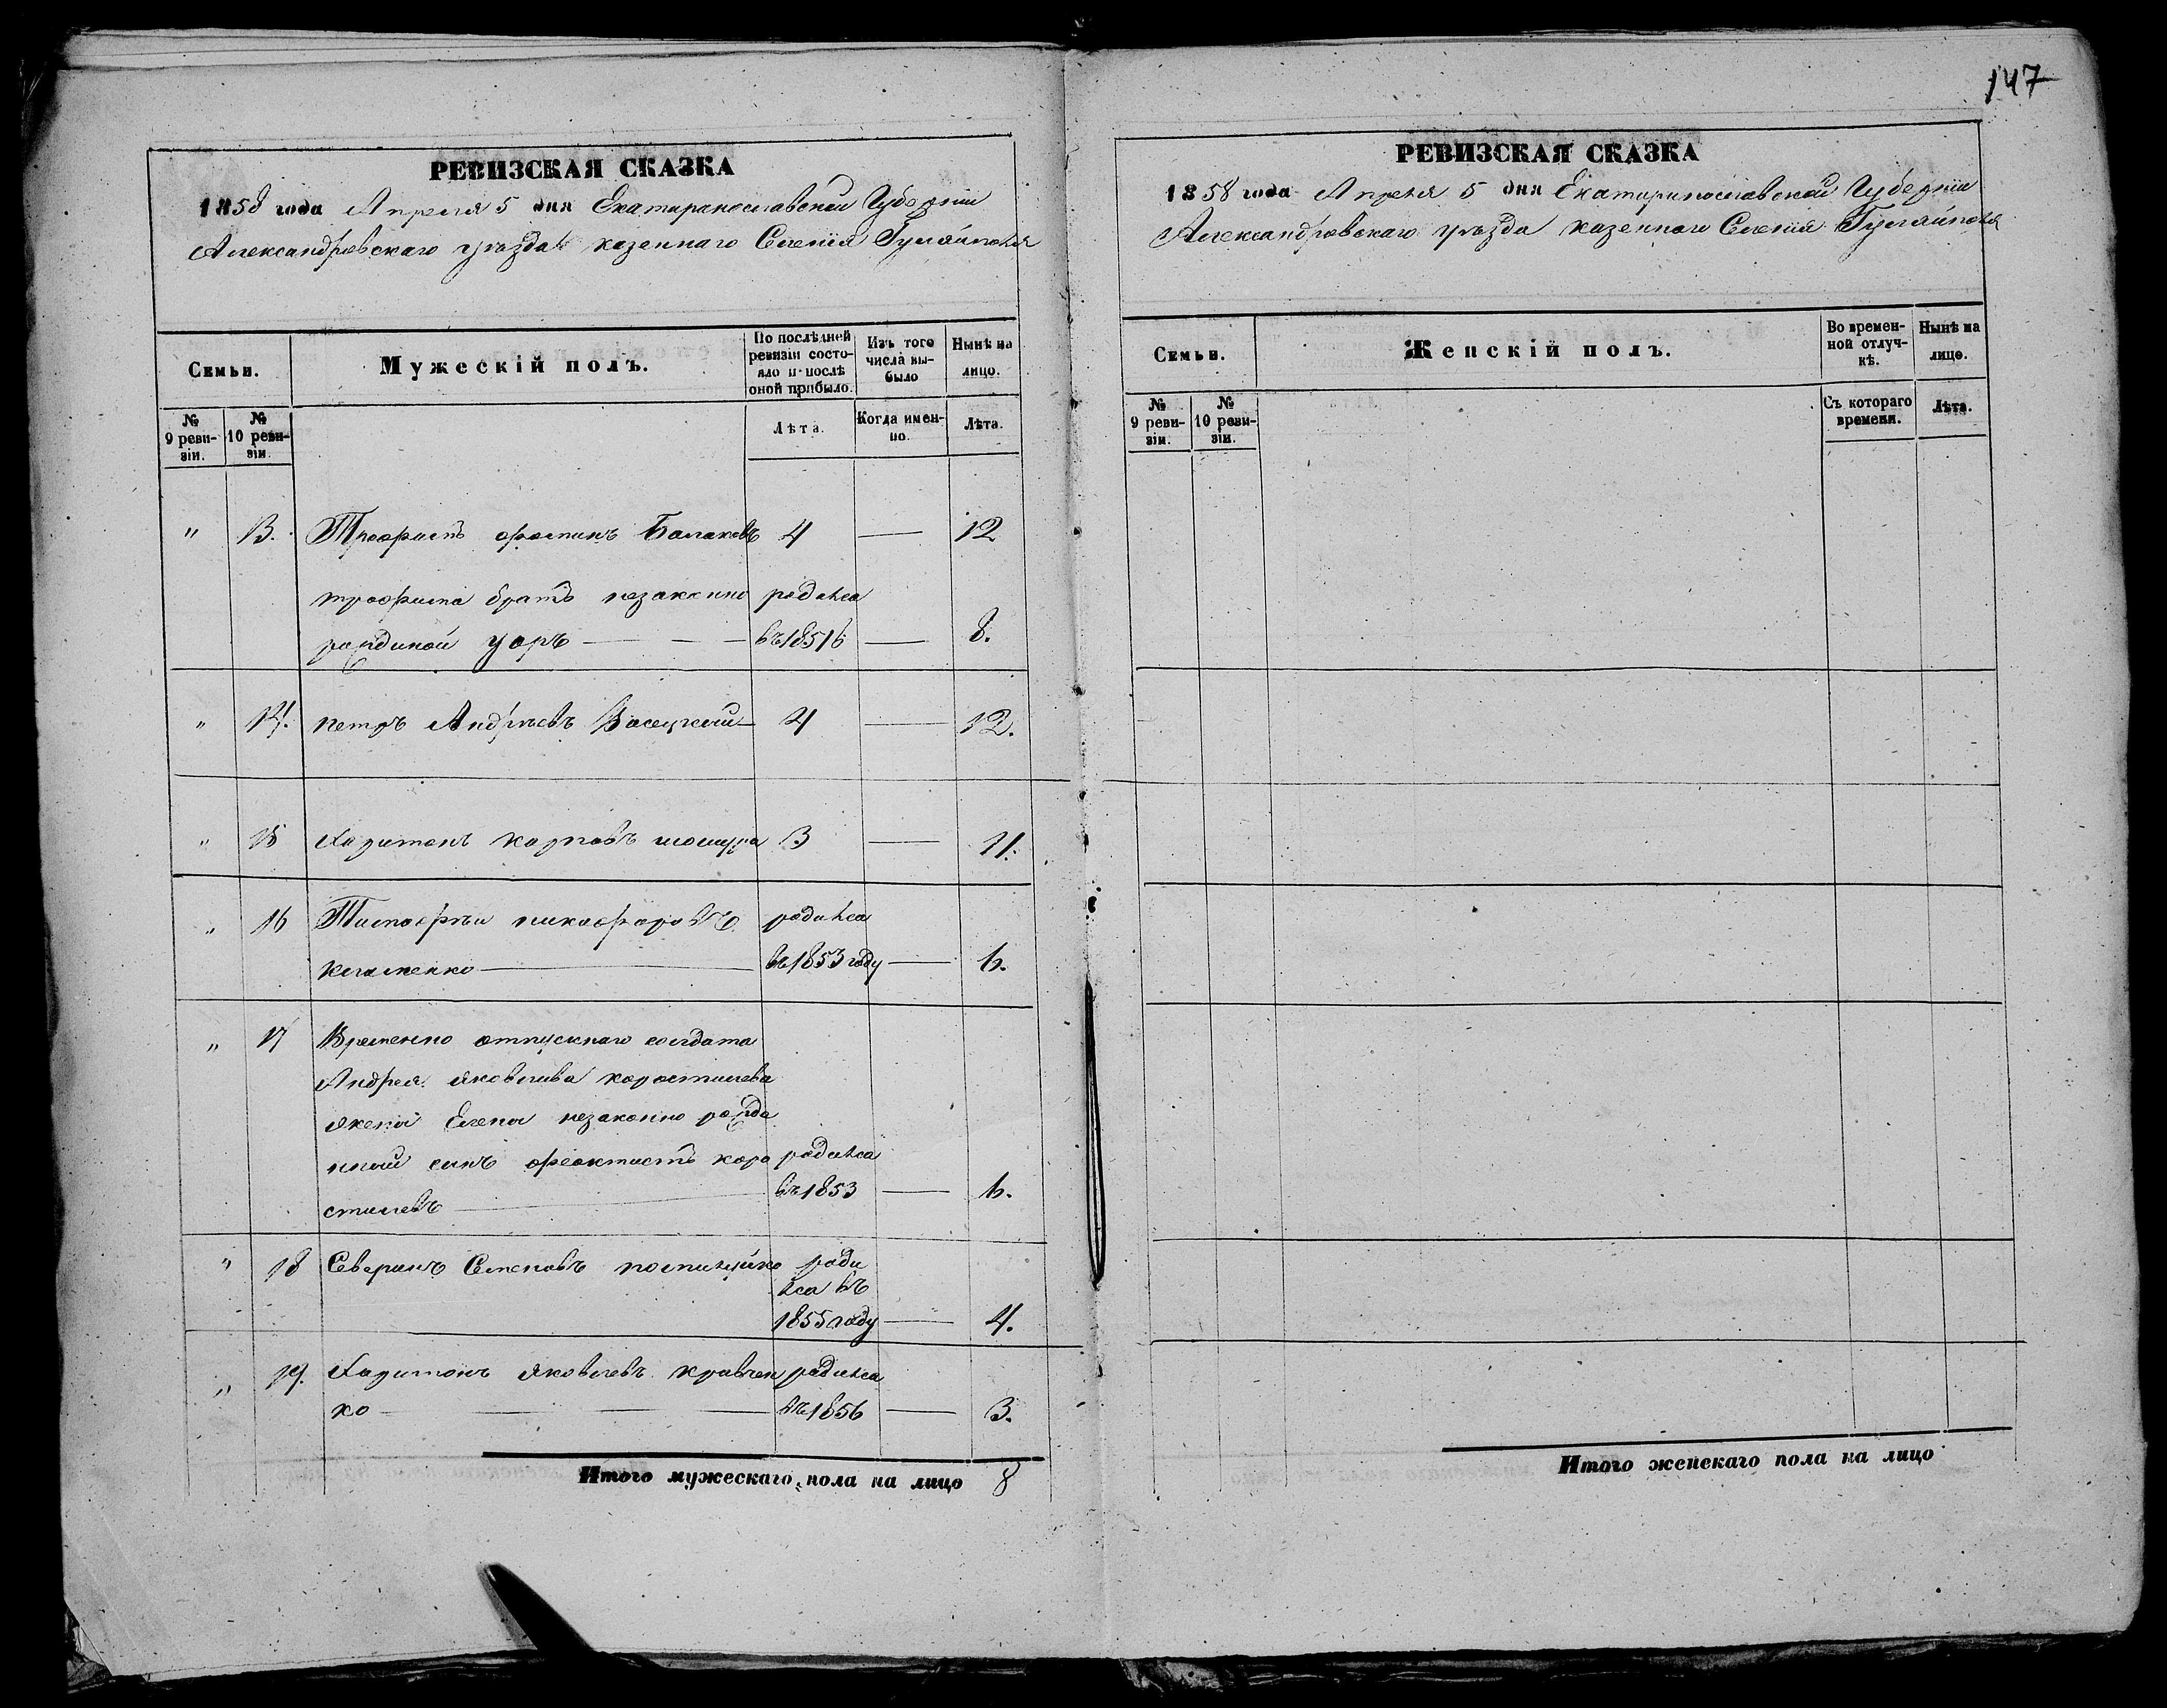 147
РЕВИЗСКАЯ СКАЗКА
1858 года Апреля 5 дня Екатеринославской Губернiи
Александровскаго уѣзда казеннаго Селенiя Гуляйполя
Семьи.
Мужескiй полъ.
По послѣдней ревизiи состояло и послѣ оной прибыло.
Изъ того числа выбыло
Нынѣ на лицо.
№ 9 ревизiи.
№ 10 ревизiи.
Лѣта.
Когда именно.
Лѣта.
" 13. Трофимъ фоминъ Балаковъ 4 — 12
трофима братъ незаконно родился
рожденой — — въ 1851 — 8.
" 14. петръ Андрѣевъ Васецкий 4 — 12.
" 15 Харитонъ карповъ 3 — 11.
" 16 Тимофѣи никифоровъ родился
— въ 1853 году — 6.
" 17 Временно отпускнаго солдата
Андрея яковлива коростилева
жена Елена незаконно рожде
нный синъ феоктистъ коро родился
стилевъ — въ 1853 — 6.
" 18 Северинъ Семеновъ роди
лся въ
1855 году — 4.
" 19. Харитонъ яковлевъ кравчен родился
ко — — — въ 1856 — 3.
Итого мужескаго пола на лицо 8
РЕВИЗСКАЯ СКАЗКА
1858 года Апреля 5 дня Екатеринославской Губернiи
Александровскаго уѣзда казеннаго Селенiя Гуляйполя
Семьи.
Женскiй полъ.
Во временной отлучкѣ.
Нынѣ на лицо.
№ 9 ревизiи.
№ 10 ревизiи.
Съ котораго времени.
Лѣта.
Итого женскаго пола на лицо